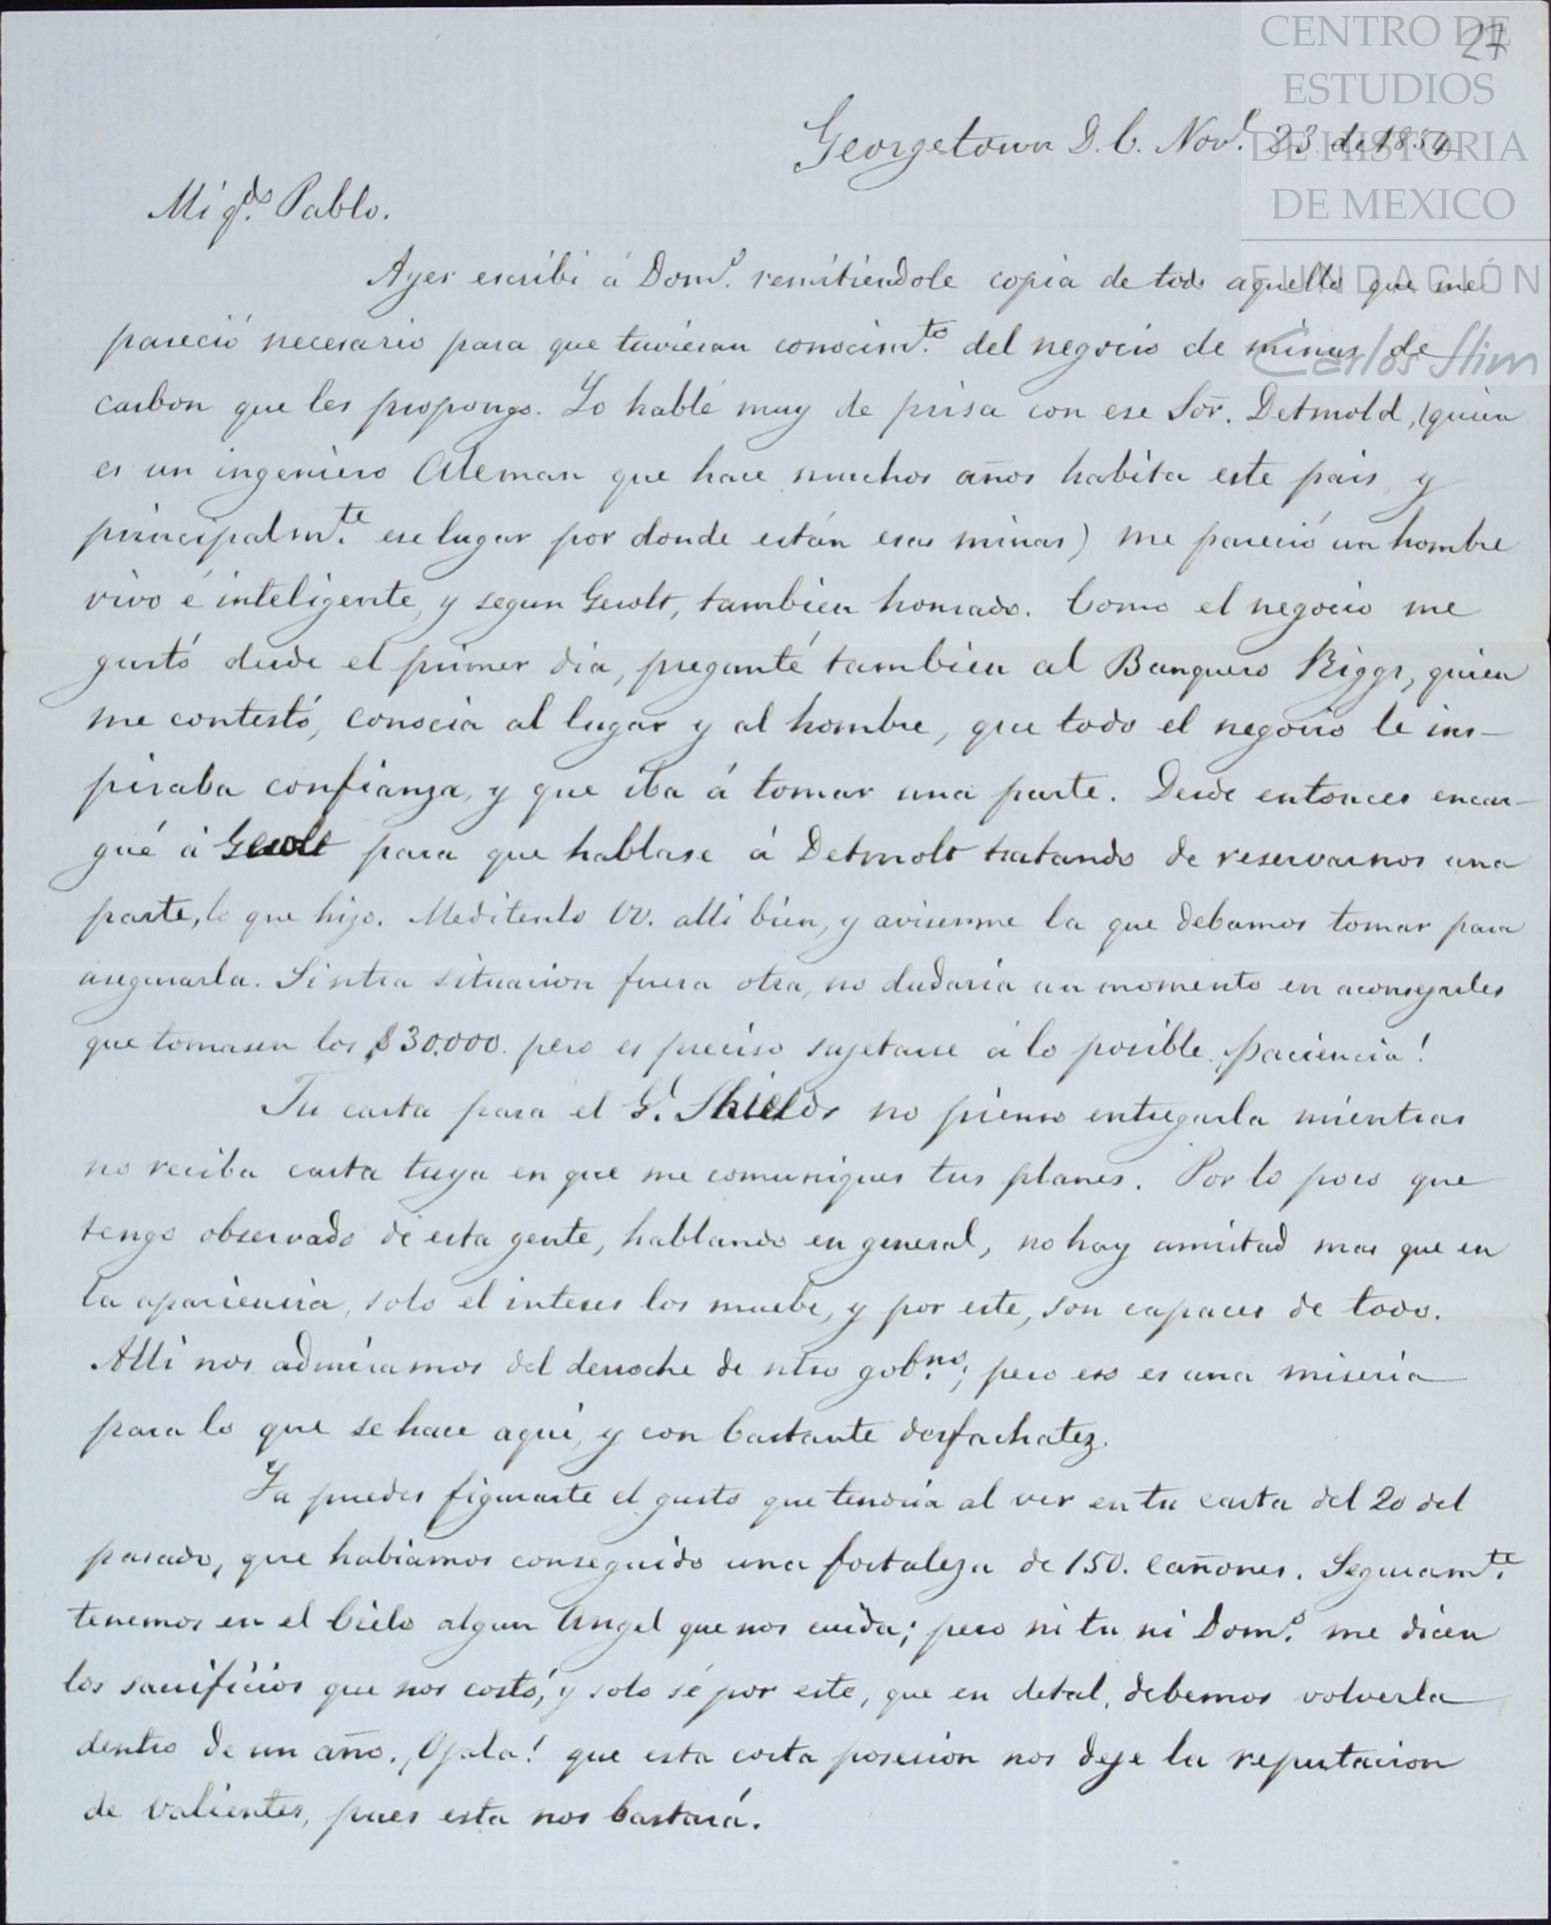 CENTRO DE
ESTUDIOS
DE HISTORIA
DE MEXICO
FUNDACIÓN
Carlos Slim
27
Georgetown D.C. Nov.e 23 de 1854
Mi q.do Pablo.
Ayer escribi á Dom.o remitiendole copia de todo aquello que me
pareció necesario para que tuvieran conocim.to del negocio de minas de
carbon que les propongo. Yo hablé muy de prisa con ese Sõr. Detmold, (quien
es un ingeniero Aleman que hace muchos años habita este pais y
principalm.te ese lugar por donde están esas minas) me pareció un hombre
vivo é inteligente, y segun Gerolt, tambien honrado. Como el negocio me
gustó desde el primer dia, pregunté tambien al Banquero Riggs, quien
me contestó, conocia al lugar y al hombre, que todo el negocio le ins-
piraba confianza, y que iba á tomar una parte. Desde entonces encar-
gué á Gerolt para que hablase á Detmolt tratando de reservarnos una
parte, lo que hizo. Meditenlo VV. alli bien, y avisenme la que debamos tomar para
asegurarla. Si ntra situacion fuera otra, no dudaria un momento en aconsejarles
que tomasen los $30.000. pero es preciso sujetarse á lo posible, ¡paciencia!
Tu carta para el G.l Shields no pienso entregarla mientras
no reciba carta tuya en que me comuniques tus planes. Por lo poco que
tengo observado de esta gente, hablando en general, no hay amistad mas que en
la apariencia, solo el interes los muebe, y por este, son capaces de todo.
Alli nos admiramos del derroche de ntro gob.no; pero eso es una miseria
para lo que se hace aqui, y con bastante desfachatez.
Ya puedes figurarte el gusto que tendria al ver en tu carta del 20 del
pasado, que habiamos conseguido una fortaleza de 150. cañones. Seguram.te
tenemos en el Cielo algun Angel que nos cuida; pero ni tu ni Dom.o me dicen
los sacrificios que nos costó, y solo sé por este, que en detal, debemos volverla
dentro de un año. ¡Ojala! que esta corta posesion nos deje la reputacion
de valientes, pues esta nos bastará.